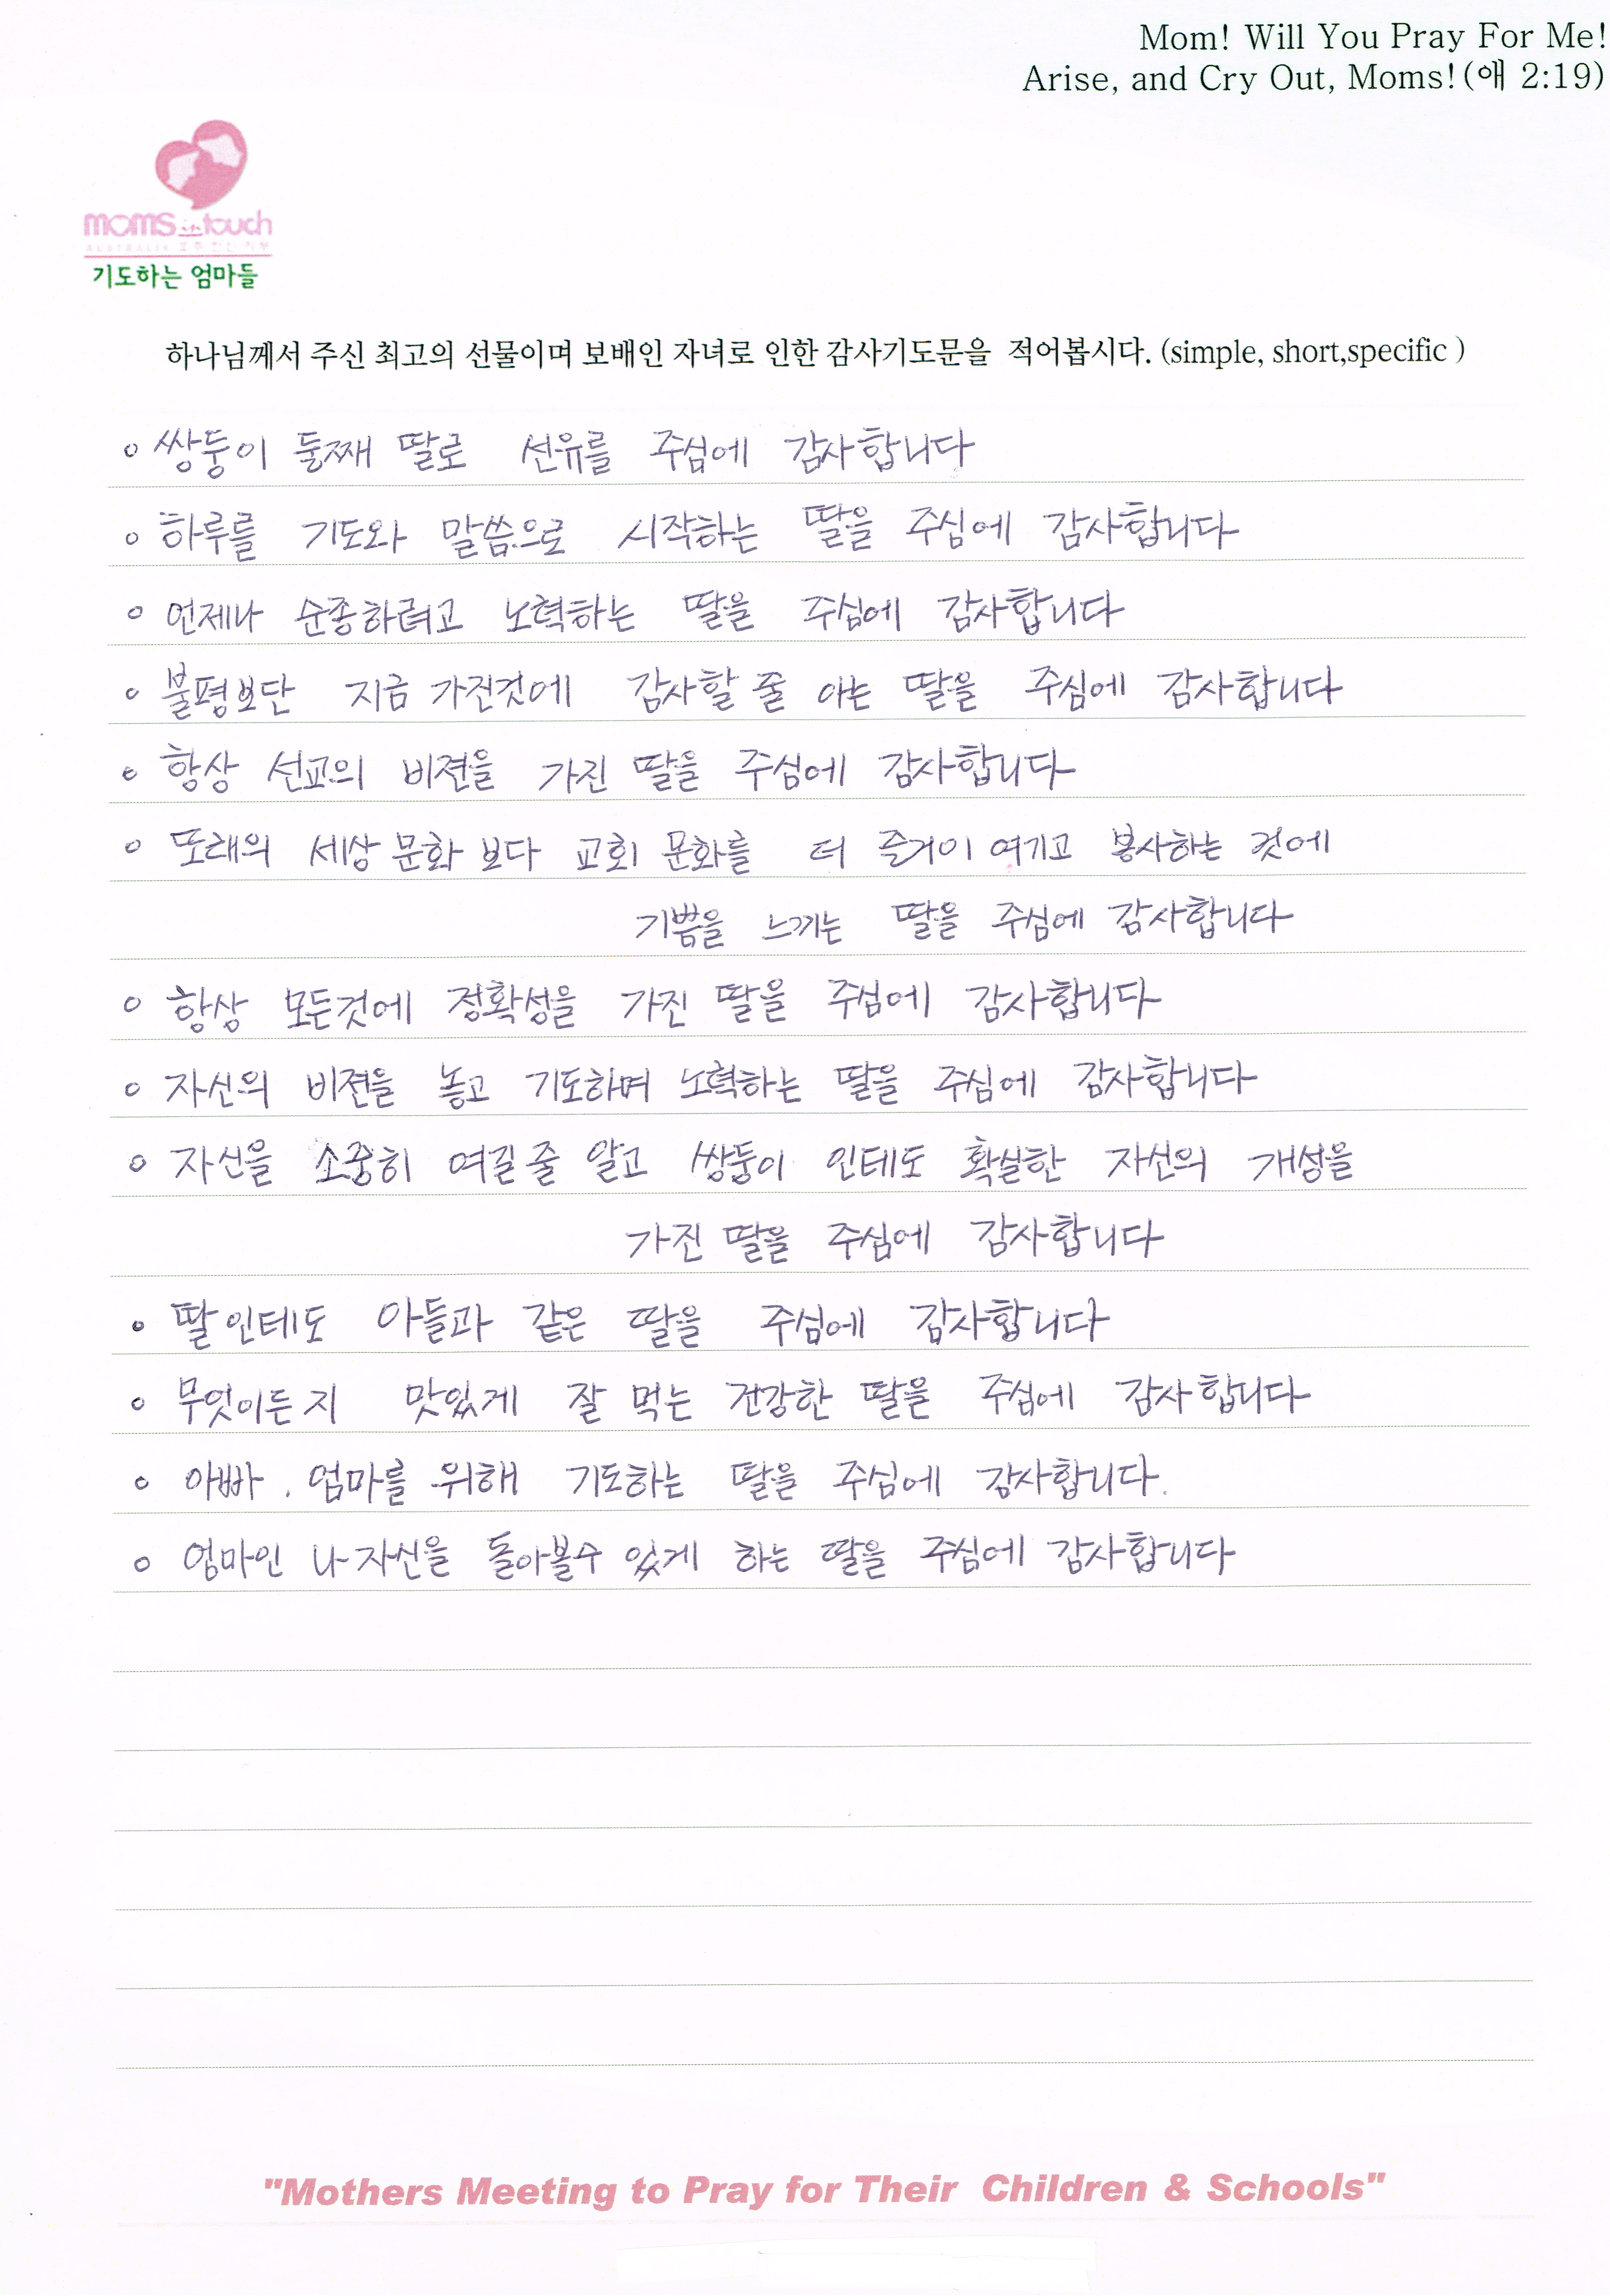 Mom! Will You Pray For Me!
Arise, and Cry Out, Moms!(애 2:19)
moms in touch
AUSTRALIA 호주
기도하는 엄마들
하나님께서 주신 최고의 선물이며 보배인 자녀로 인한 감사기도문을 적어봅시다. (simple, short,specific )
○ 쌍둥이 둘째 딸로 선유를 주심에 감사합니다
○ 하루를 기도와 말씀으로 시작하는 딸을 주심에 감사합니다
○ 언제나 순종하려고 노력하는 딸을 주심에 감사합니다
○ 불평보단 지금 가진것에 감사할 줄 아는 딸을 주심에 감사합니다
○ 항상 선교의 비젼을 가진 딸을 주심에 감사합니다
○ 또래의 세상 문화 보다 교회 문화를 더 즐거이 여기고 봉사하는 것에
기쁨을 느끼는 딸을 주심에 감사합니다
○ 항상 모든것에 정확성을 가진 딸을 주심에 감사합니다
○ 자신의 비젼을 놓고 기도하며 노력하는 딸을 주심에 감사합니다
○ 자신을 소중히 여길 줄 알고 쌍둥이 인테도 확실한 자신의 개성을
가진 딸을 주심에 감사합니다
○ 딸인테도 아들과 같은 딸을 주심에 감사합니다
○ 무엇이든지 맛있게 잘 먹는 건강한 딸을 주심에 감사합니다
○ 아빠. 엄마를 위해 기도하는 딸을 주심에 감사합니다.
○ 엄마인 나자신을 돌아볼수 있게 하는 딸을 주심에 감사합니다
"Mothers Meeting to Pray for Their Children & Schools"